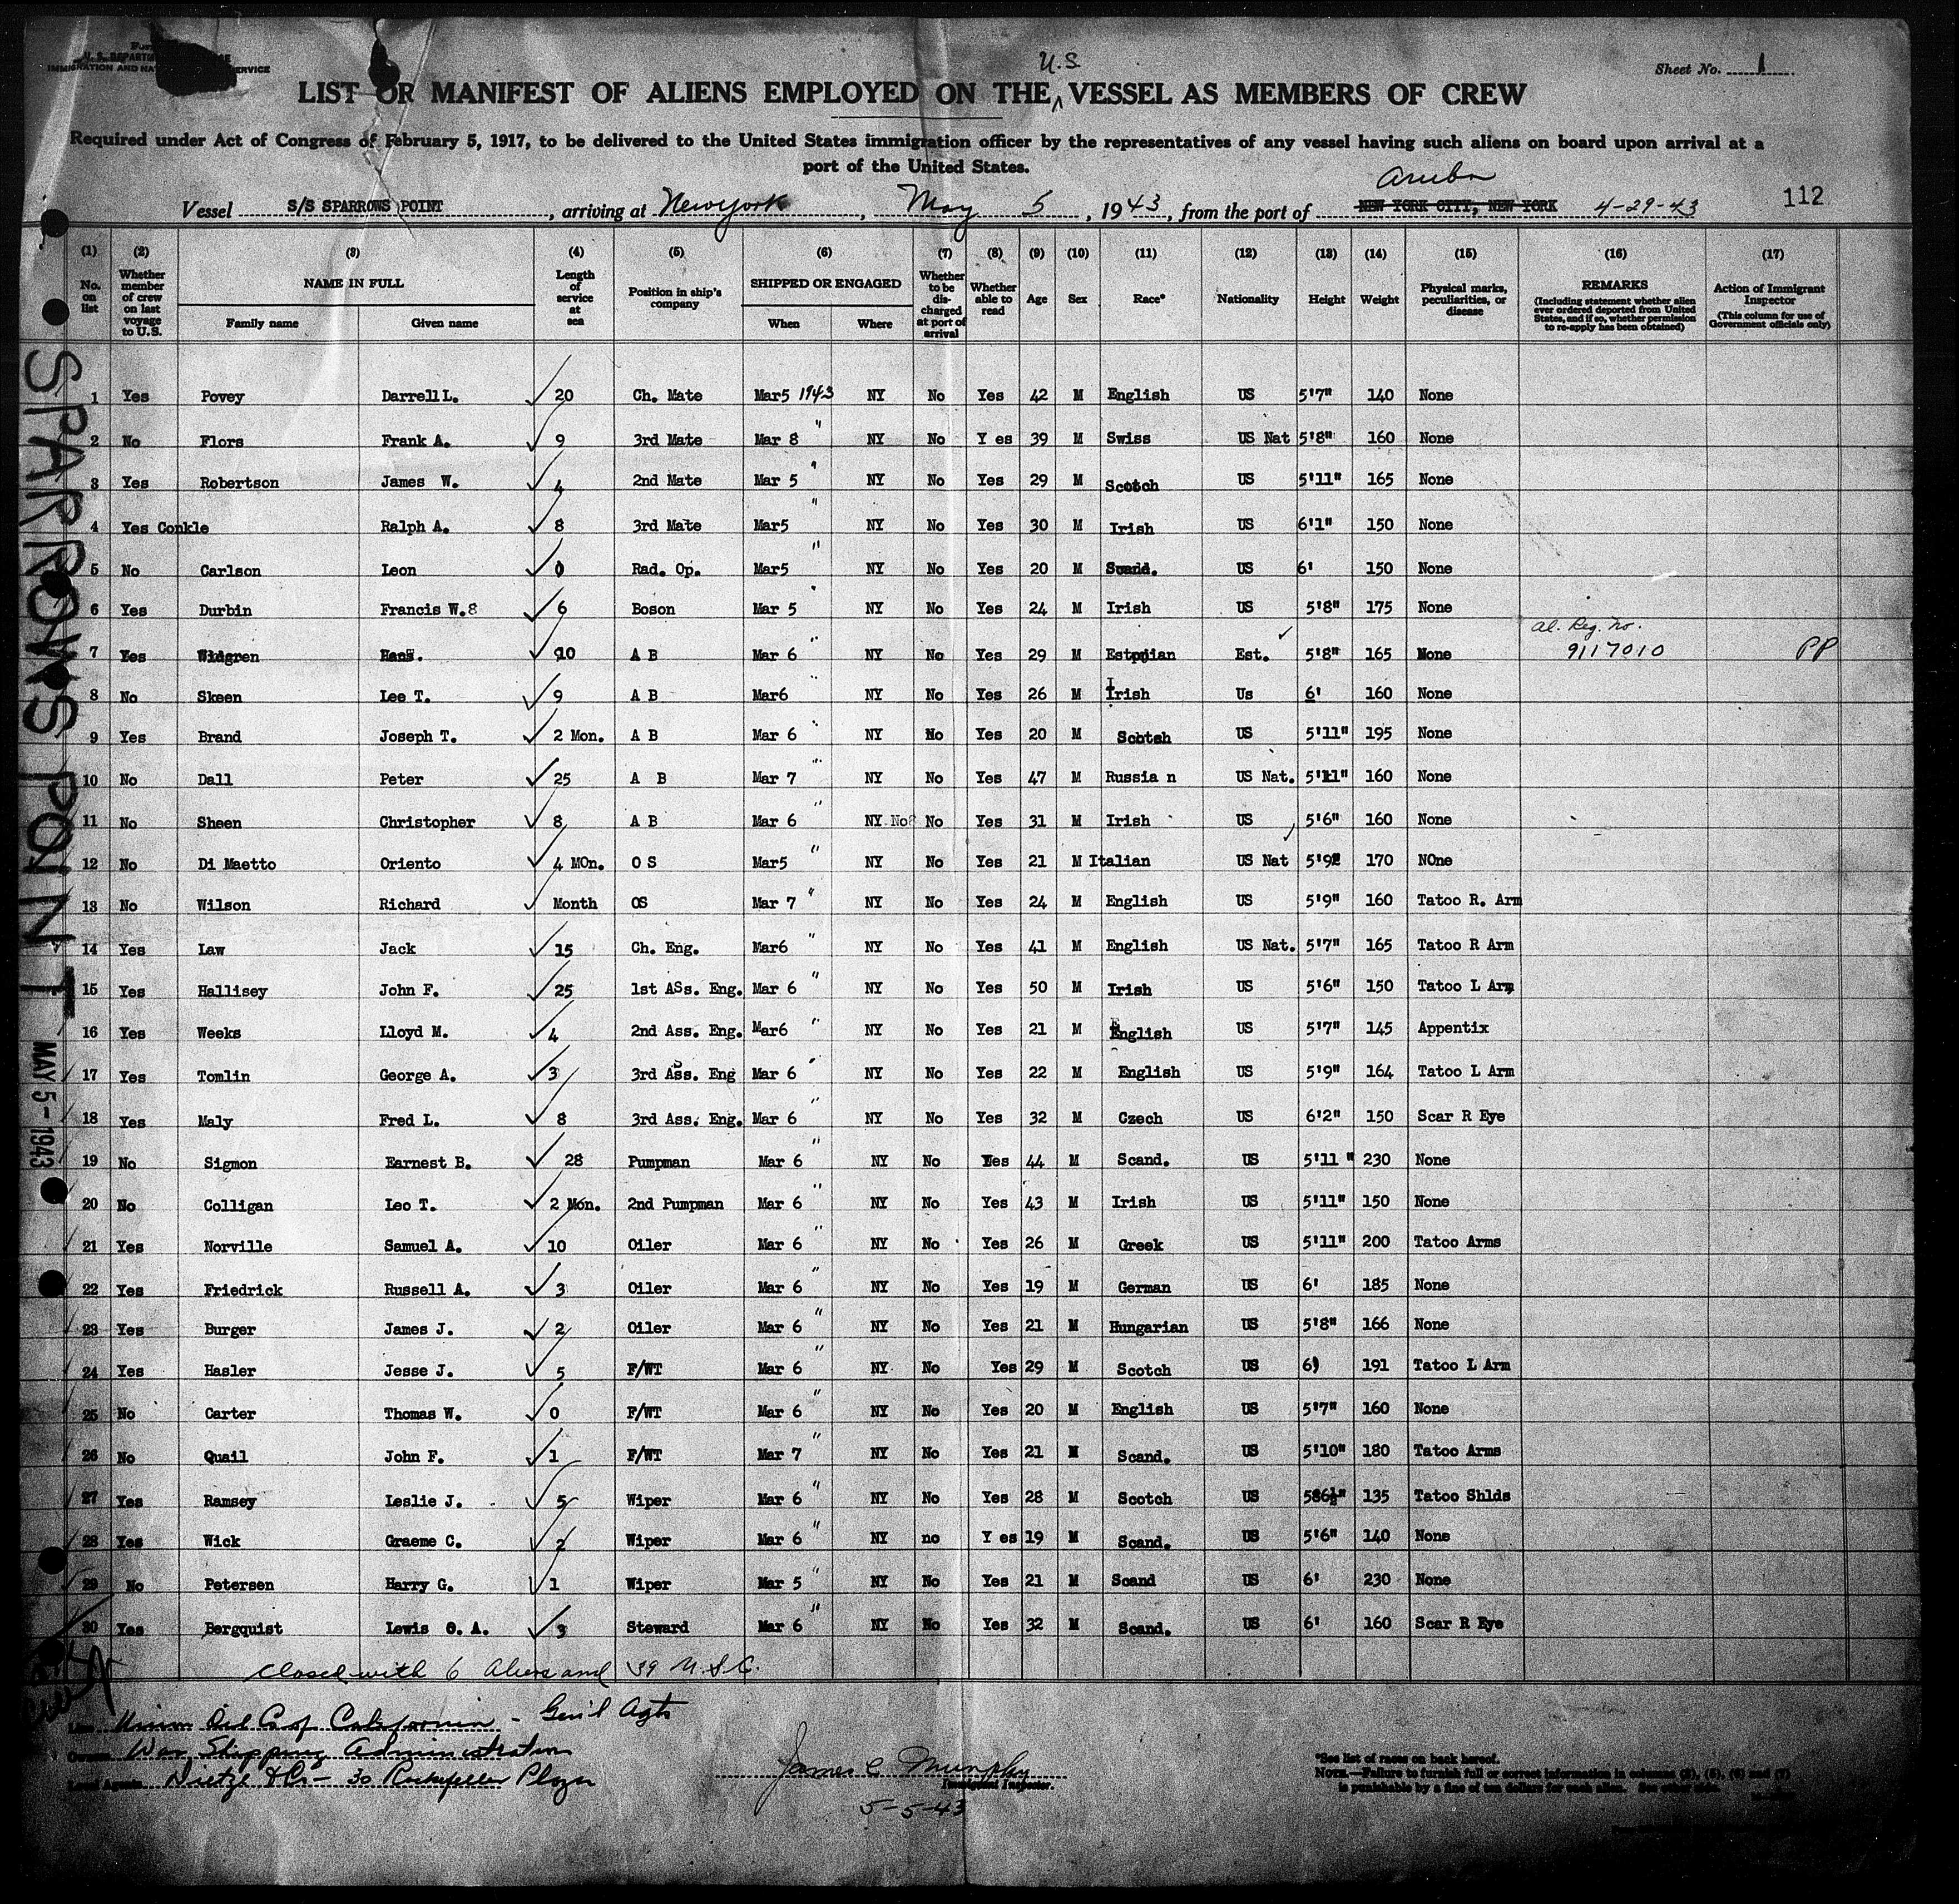 U. S. DEPARTM
IMMIGRATION AND NAT SERVICE
Sheet No. 1
U.S
LIST OR MANIFEST OF ALIENS EMPLOYED ON THE VESSEL AS MEMBERS OF CREW
Required under Act of Congress of February 5, 1917, to be delivered to the United States immigration officer by the representatives of any vessel having such aliens on board upon arrival at a
port of the United States.
Aruba
Vessel S/S SPARROWS POINT, arriving at New York, May 5, 1943, from the port of NEW YORK CITY, NEW YORK 4-29-43
112
(1) (2) (3) (4) (5) (6) (7) (8) (9) (10) (11) (12) (13) (14) (15) (16) (17)
No. on list Whether member of crew on last voyage to U.S. NAME IN FULL Family name Given name Length of service at sea Position in ship's company SHIPPED OR ENGAGED When Where Whether to be discharged at port of arrival Whether able to read Age Sex Race* Nationality Height Weight Physical marks, peculiarities, or disease REMARKS (Including statement whether alien ever ordered deported from United States, and if so, whether permission to re-apply has been obtained) Action of Immigrant Inspector (This column for use of Government officials only)
1 Yes Povey Darrell L. 20 Ch. Mate Mar5 1943 NY No Yes 42 M English US 5'7" 140 None
2 No Flors Frank A. 9 3rd Mate Mar 8 " NY No Y es 39 M Swiss US Nat 5'8" 160 None
3 Yes Robertson James W. 4 2nd Mate Mar 5 " NY No Yes 29 M Scotch US 5'11" 165 None
4 Yes Conkle Ralph A. 8 3rd Mate Mar5 " NY No Yes 30 M Irish US 6'1" 150 None
5 No Carlson Leon 0 Rad. Op. Mar5 " NY No Yes 20 M Scand. US 6' 150 None
6 Yes Durbin Francis W.8 6 Boson Mar 5 " NY No Yes 24 M Irish US 5'8" 175 None
7 Yes Widgren Hans. 10 A B Mar 6 " NY No Yes 29 M Estonian Est. 5'8" 165 None Al. Reg. No. 9117010 PP
8 No Skeen Lee T. 9 A B Mar6 " NY No Yes 26 M Irish Us 6' 160 None
9 Yes Brand Joseph T. 2 Mon. A B Mar 6 " NY No Yes 20 M Scotch US 5'11" 195 None
10 No Dall Peter 25 A B Mar 7 " NY No Yes 47 M Russia n US Nat. 5'11" 160 None
11 No Sheen Christopher 8 A B Mar 6 " NY No No Yes 31 M Irish US 5'6" 160 None
12 No Di Maetto Oriento 4 MOn. O S Mar5 " NY No Yes 21 M Italian US Nat 5'9 170 NOne
13 No Wilson Richard Month OS Mar 7 " NY No Yes 24 M English US 5'9" 160 Tatoo R. Arm
14 Yes Law Jack 15 Ch. Eng. Mar6 " NY No Yes 41 M English US Nat. 5'7" 165 Tatoo R Arm
15 Yes Hallisey John F. 25 1st ASs. Eng. Mar 6 " NY No Yes 50 M Irish US 5'6" 150 Tatoo L Arm
16 Yes Weeks Lloyd M. 4 2nd Ass. Eng. Mar6 " NY No Yes 21 M English US 5'7" 145 Appentix
17 Yes Tomlin George A. 3 3rd Ass. Eng Mar 6 " NY No Yes 22 M English US 5'9" 164 Tatoo L Arm
18 Yes Maly Fred L. 8 3rd Ass. Eng. Mar 6 " NY No Yes 32 M Czech US 6'2" 150 Scar R Eye
19 No Sigmon Earnest B. 28 Pumpman Mar 6 " NY No Yes 44 M Scand. US 5'11 " 230 None
20 No Colligan Leo T. 2 Mon. 2nd Pumpman Mar 6 " NY No Yes 43 M Irish US 5'11" 150 None
21 Yes Norville Samuel A. 10 Oiler Mar 6 " NY No Yes 26 M Greek US 5'11" 200 Tatoo Arms
22 Yes Friedrick Russell A. 3 Oiler Mar 6 " NY No Yes 19 M German US 6' 185 None
23 Yes Burger James J. 2 Oiler Mar 6 " NY No Yes 21 M Hungarian US 5'8" 166 None
24 Yes Hasler Jesse J. 5 F/WT Mar 6 " NY No Yes 29 M Scotch US 6) 191 Tatoo L Arm
25 No Carter Thomas W. 0 F/WT Mar 6 " NY No Yes 20 M English US 5'7" 160 None
26 No Quail John F. 1 F/WT Mar 7 " NY No Yes 21 M Scand. US 5'10" 180 Tatoo Arms
27 Yes Ramsey Leslie J. 5 Wiper Mar 6 " NY No Yes 28 M Scotch US 586½" 135 Tatoo Shlds
28 Yes Wick Graeme C. 2 Wiper Mar 6 " NY no Y es 19 M Scand. US 5'6" 140 None
29 No Petersen Harry G. 1 Wiper Mar 5 " NY No Yes 21 M Scand US 6' 230 None
30 Yes Bergquist Lewis O. A. 3 Steward Mar 6 " NY No Yes 32 M Scand. US 6' 160 Scar R Eye
SPARROWS POINT
MAY 5-1943
Closed with 6 Aliens and 39 U.S.C.
Line Union Oil Co of California - Gen'l Agts
Owners War Shipping Administration
Local Agents Dietze & Co - 30 Rockefeller Plaza
James C Murphy
Immigrant Inspector.
5-5-43
*See list of races on back hereof.
NOTE.—Failure to furnish full or correct information in columns (2), (5), (6) and (7)
is punishable by a fine of ten dollars for each alien. See other side.